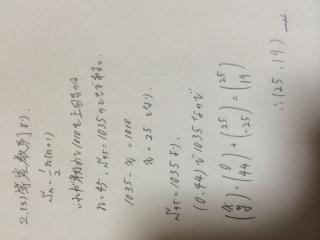 2.(3) 等差数列より.
Sn = 1/2 n(n+1)
これが初めて1010を上回るのは
n=45, S45=1035のときである。
1035 - x = 1010
x = 25 となり
S45 = 1035 より.
(0,44) で 1035 なので
(x y) = (0 44) + (25 -25) = (25 19)
∴ (25, 19)